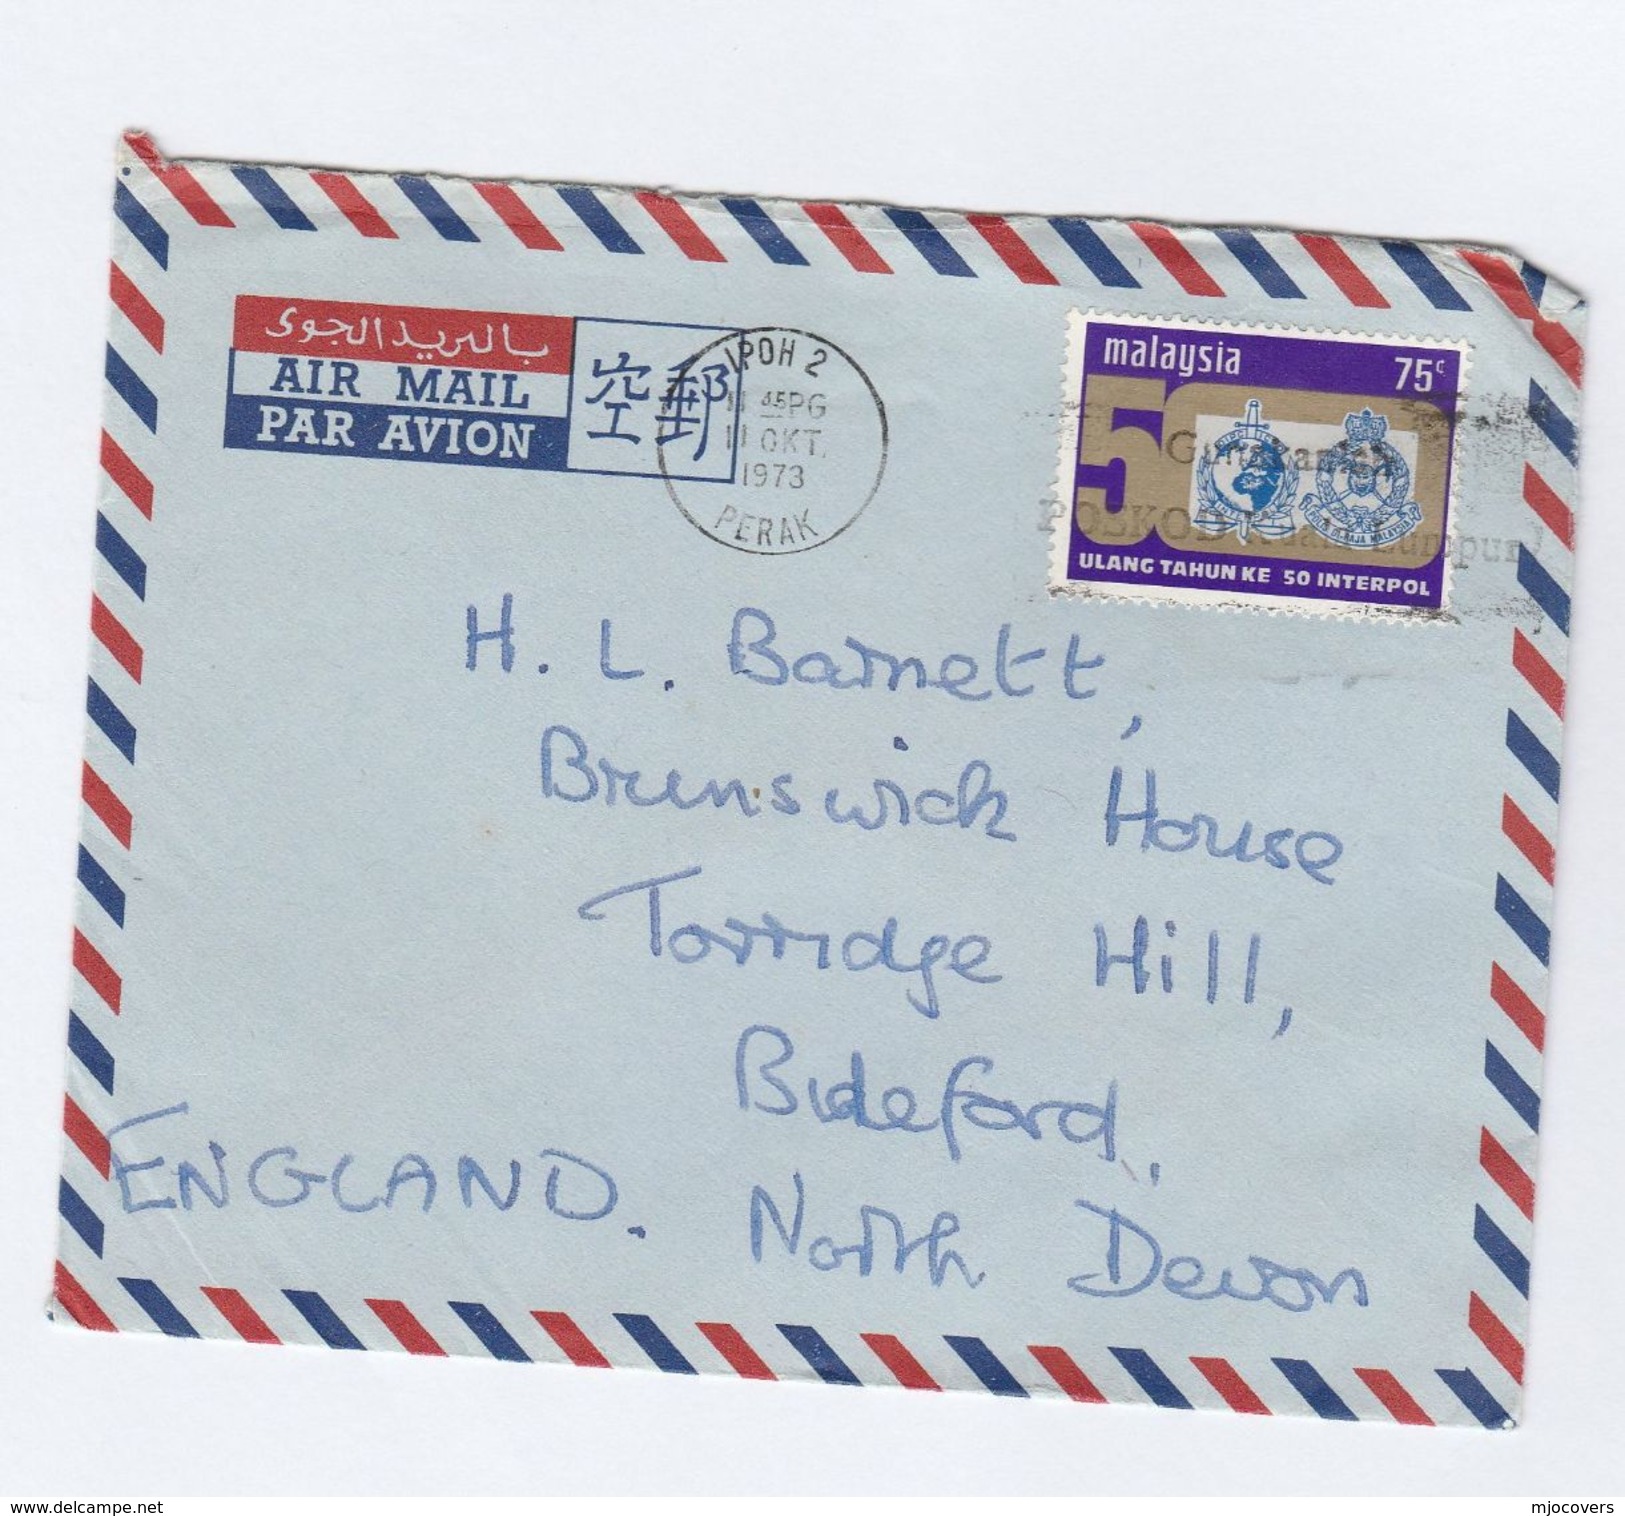 بالبريد الجوى
AIR MAIL
PAR AVION
空郵
IPOH 2
11 45PG
11 OKT.
1973
PERAK
malaysia 75c
50
Gunakanlah
POSKOD Kuala Lumpur
POLIS DI-RAJA MALAYSIA
ULANG TAHUN KE 50 INTERPOL
H. L. Barnett,
Brunswick House
Torridge Hill,
Bideford,
North Devon
ENGLAND.
www.delcampe.net
mjocovers